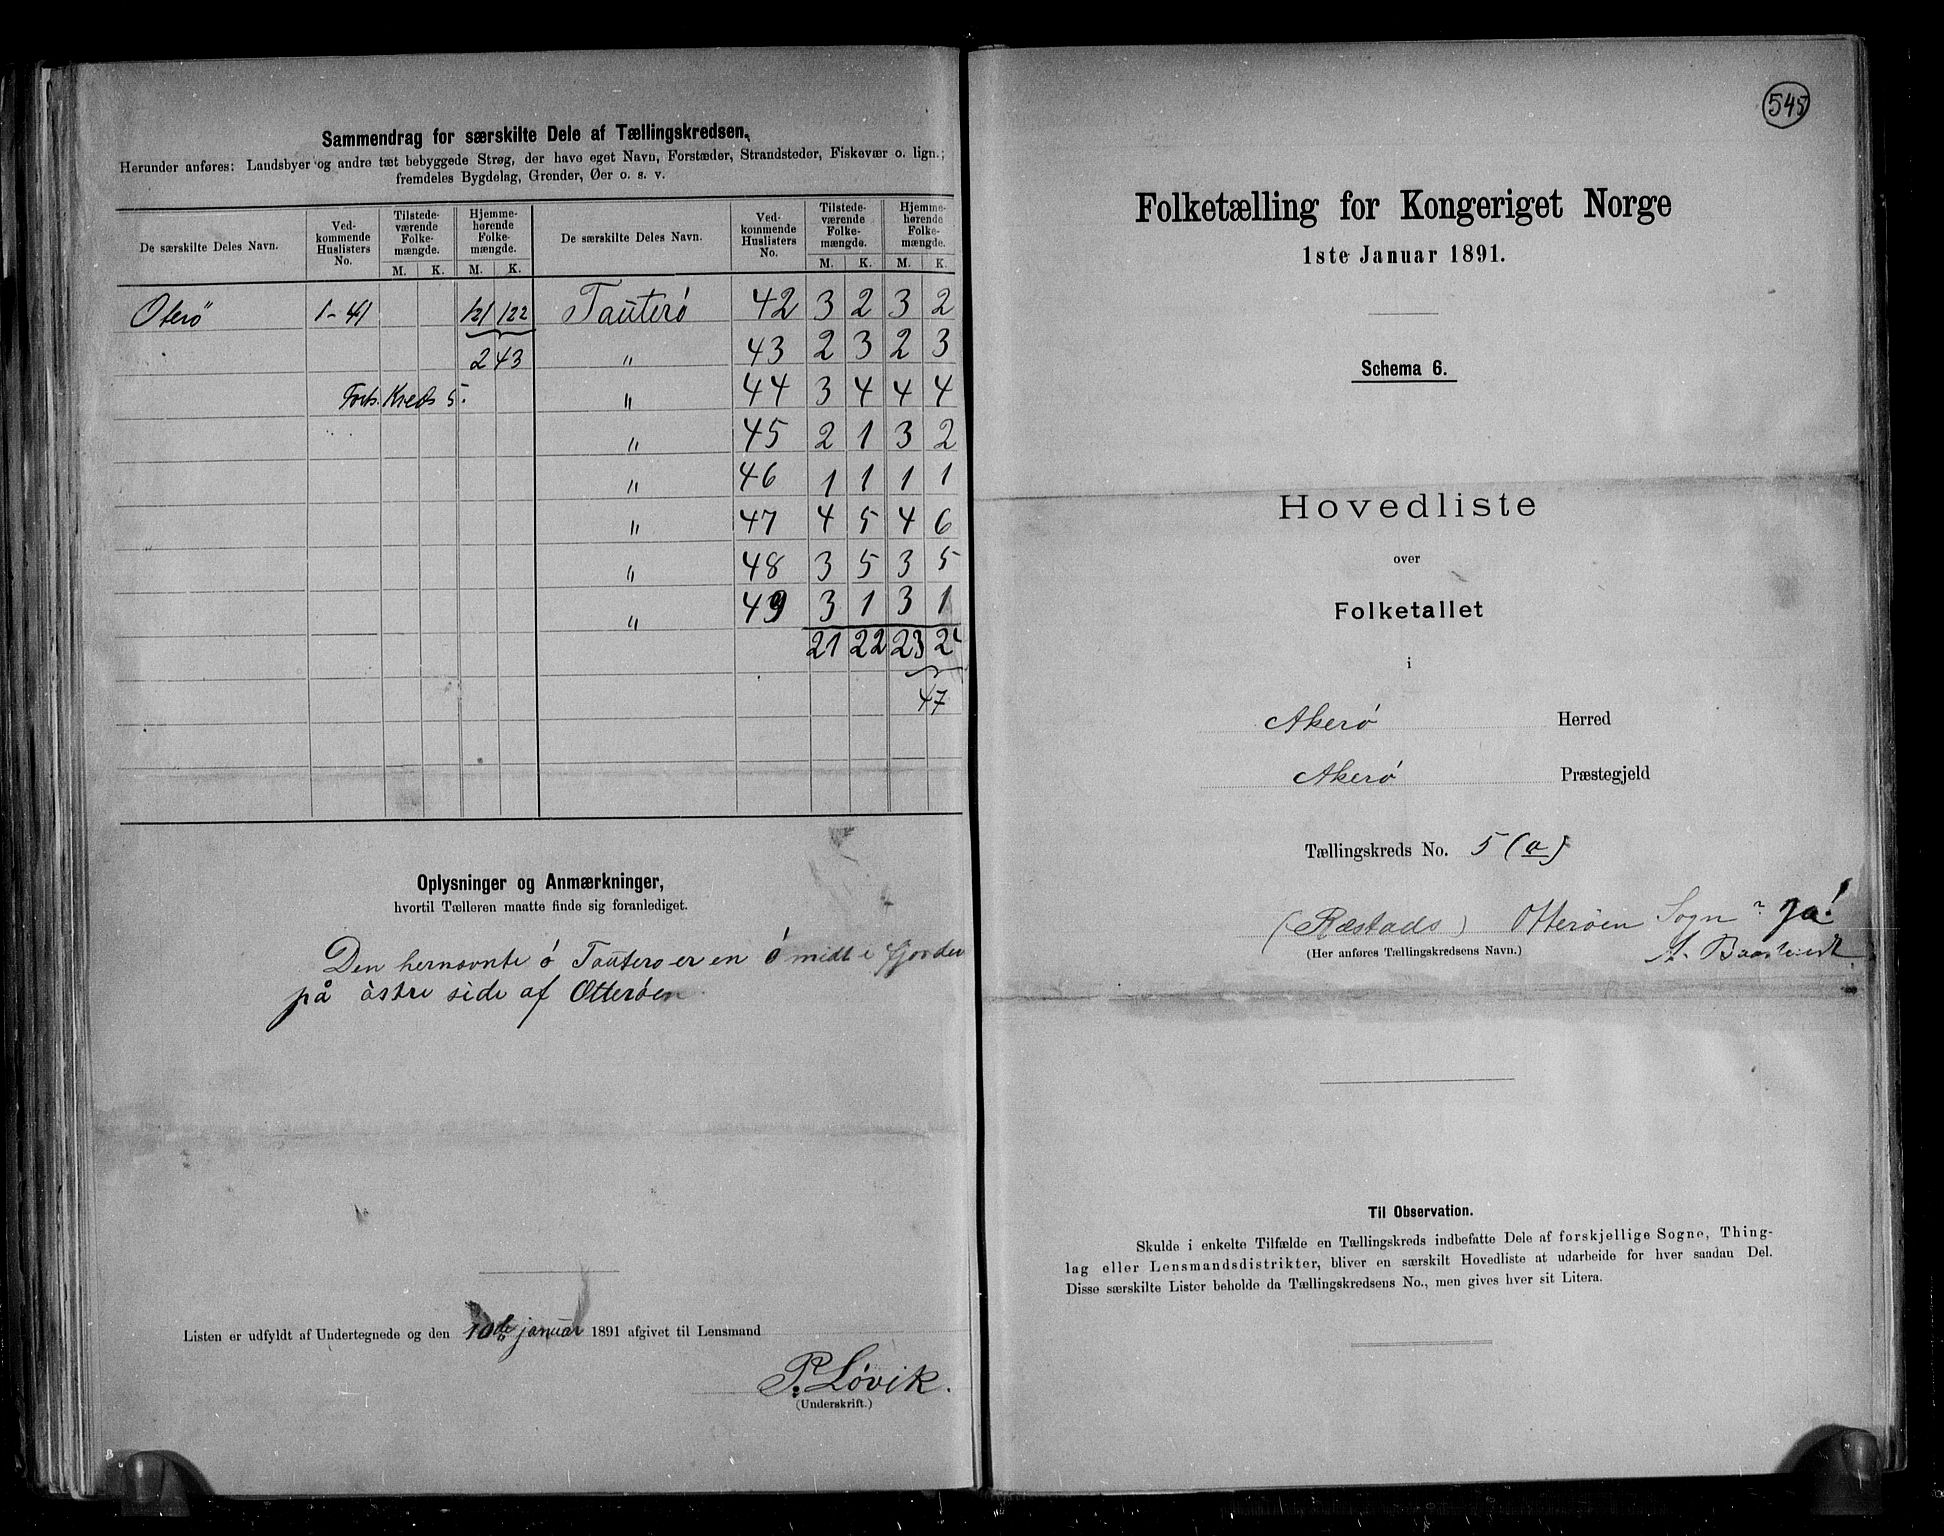 Sammendrag for særskilte Dele af Tællingskredsen.
Herunder anføres: Landsbyer og andre tæt bebyggede Strøg, der have eget Navn, Forstæder, Strandsteder, Fiskevær o. lign.;
fremdeles Bygdelag, Grender, Øer o. s. v.
De særskilte Deles Navn. Ved-kommende Huslisters No. Tilstede-værende Folke-mængde. Hjemme-hørende Folke-mængde. De særskilte Deles Navn. Ved-kommende Huslisters No. Tilstede-værende Folke-mængde. Hjemme-hørende Folke-mængde.
M. K. M. K. M. K. M. K.
Oterø 1-41 121 122 Tauterø 42 3 2 3 2
243 " 43 2 3 2 3
Forts. Kreds 5. " 44 3 4 4 4
" 45 2 1 3 2
" 46 1 1 1 1
" 47 4 5 4 6
" 48 3 5 3 5
" 49 3 1 3 1
21 22 23 24
47
Oplysninger og Anmærkninger,
hvortil Tælleren maatte finde sig foranlediget.
Den hernævnte ö Tauterø er en ö midt i fjorden
på östre side af Otterøen
Listen er udfyldt af Undertegnede og den 10de januar 1891 afgivet til Lensmand
P. Løvik.
(Underskrift.)
545
Folketælling for Kongeriget Norge
1ste Januar 1891.
Schema 6.
Hovedliste
over
Folketallet
i
Akerø Herred
Akerø Præstegjeld
Tællingskreds No. 5 (a)
(Ræstads) Otterøen Sogn ? Ja!
(Her anføres Tællingskredsens Navn.)
Til Observation.
Skulde i enkelte Tilfælde en Tællingskreds indbefatte Dele af forskjellige Sogne, Thing-
lag eller Lensmandsdistrikter, bliver en særskilt Hovedliste at udarbeide for hver saadan Del.
Disse særskilte Lister beholde da Tællingskredsens No., men gives hver sit Litera.